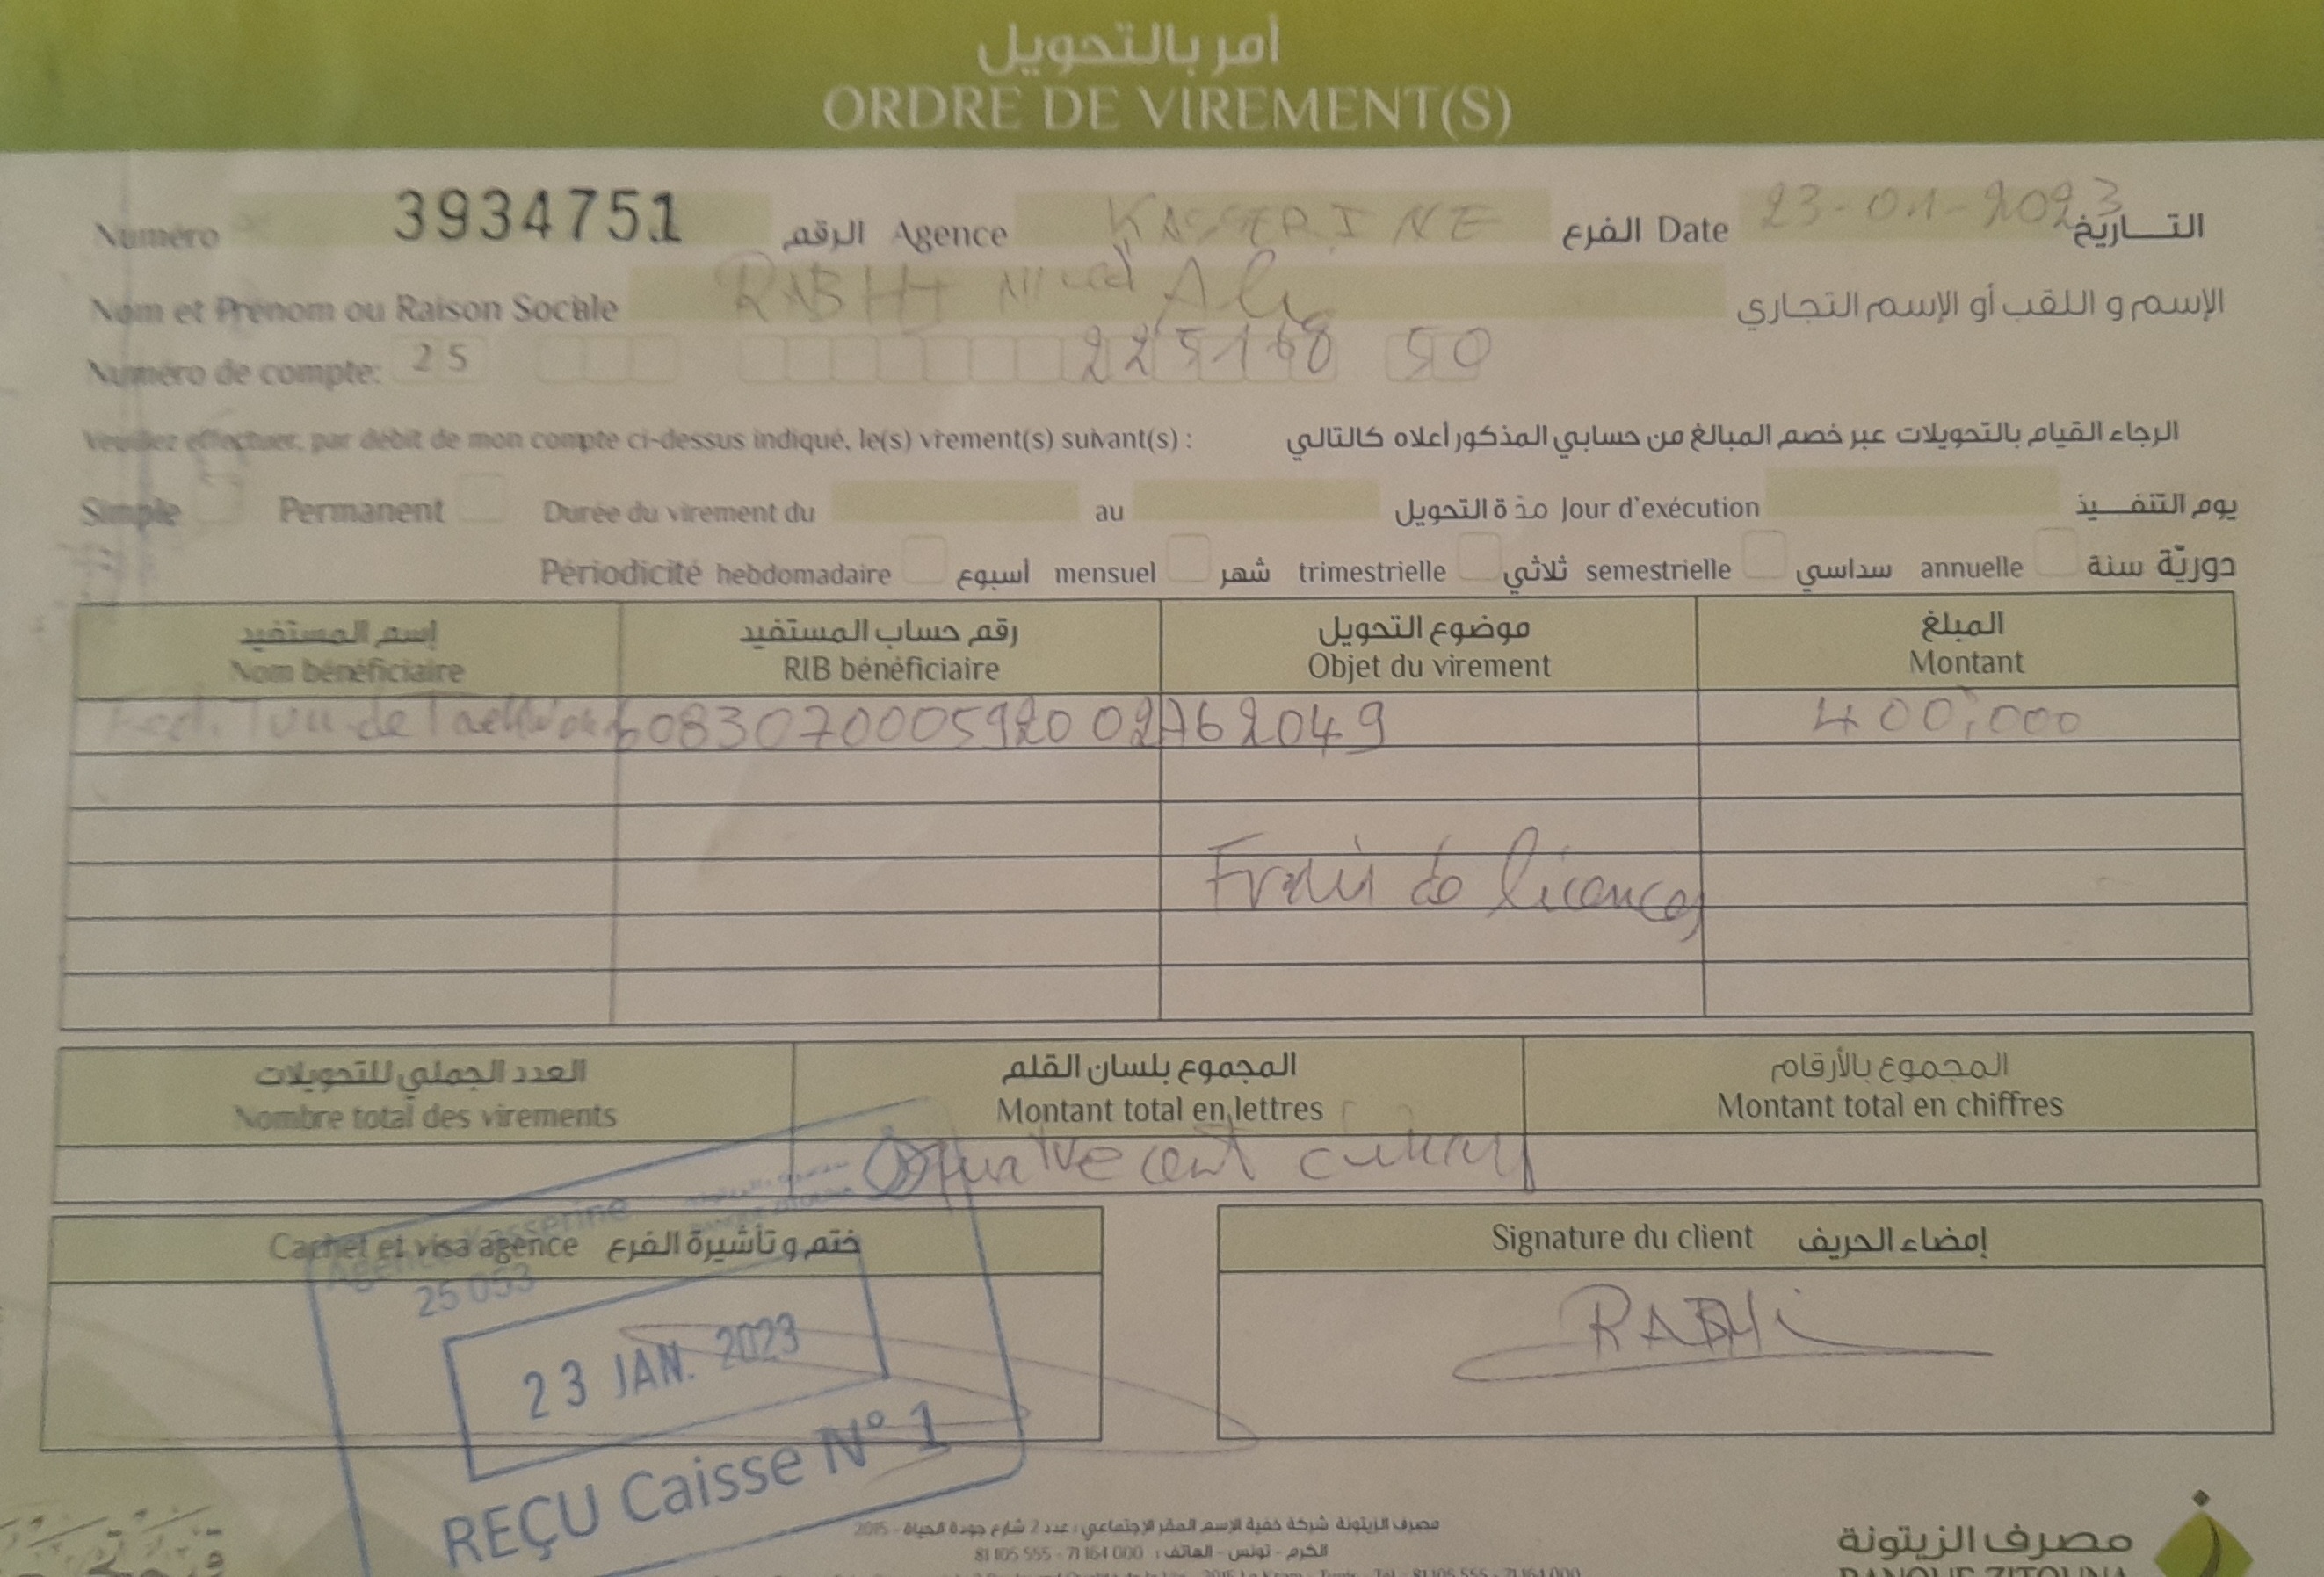 أمر بالتحويل
ORDRE DE VIREMENT(S)
Numéro 3934751 الرقم Agence KASSERINE الفرع Date 23-01-2023 التـــاريخ
Nom et Prénom ou Raison Sociale RABHI Med Ali الإسم و اللقب أو الإسم التجاري
Numéro de compte: 25 225168 50
Veuillez effectuer, par débit de mon compte ci-dessus indiqué, le(s) virement(s) suivant(s) : الرجاء القيام بالتحويلات عبر خصم المبالغ من حسابي المذكور أعلاه كالتالي
Simple Permanent Durée du virement du au مدّة التحويل Jour d'exécution يوم التنفـــيذ
Périodicité hebdomadaire أسبوع mensuel شهر trimestrielle ثلاثي semestrielle سداسي annuelle دوريّة سنة
إسم المستفيد رقم حساب المستفيد موضوع التحويل المبلغ
Nom bénéficiaire RIB bénéficiaire Objet du virement Montant
Fed. Tun de Taekwondo 08307000592002762049 400,000
Frais de licences
العدد الجملي للتحويلات المجموع بلسان القلم المجموع بالأرقام
Nombre total des virements Montant total en lettres Montant total en chiffres
quatre cent dinars
Agence Kasserine
25 053
Cachet et visa agence ختم و تأشيرة الفرع Signature du client إمضاء الحريف
23 JAN. 2023
RABHi
REÇU Caisse N° 1
مصرف الزيتونة شركة خفية الإسم المقر الإجتماعي : عدد 2 شارع جودة الحياة - 2015
الكرم - تونس - الهاتف : 000 164 71 - 555 105 81
مصرف الزيتونة
BANQUE ZITOUNA